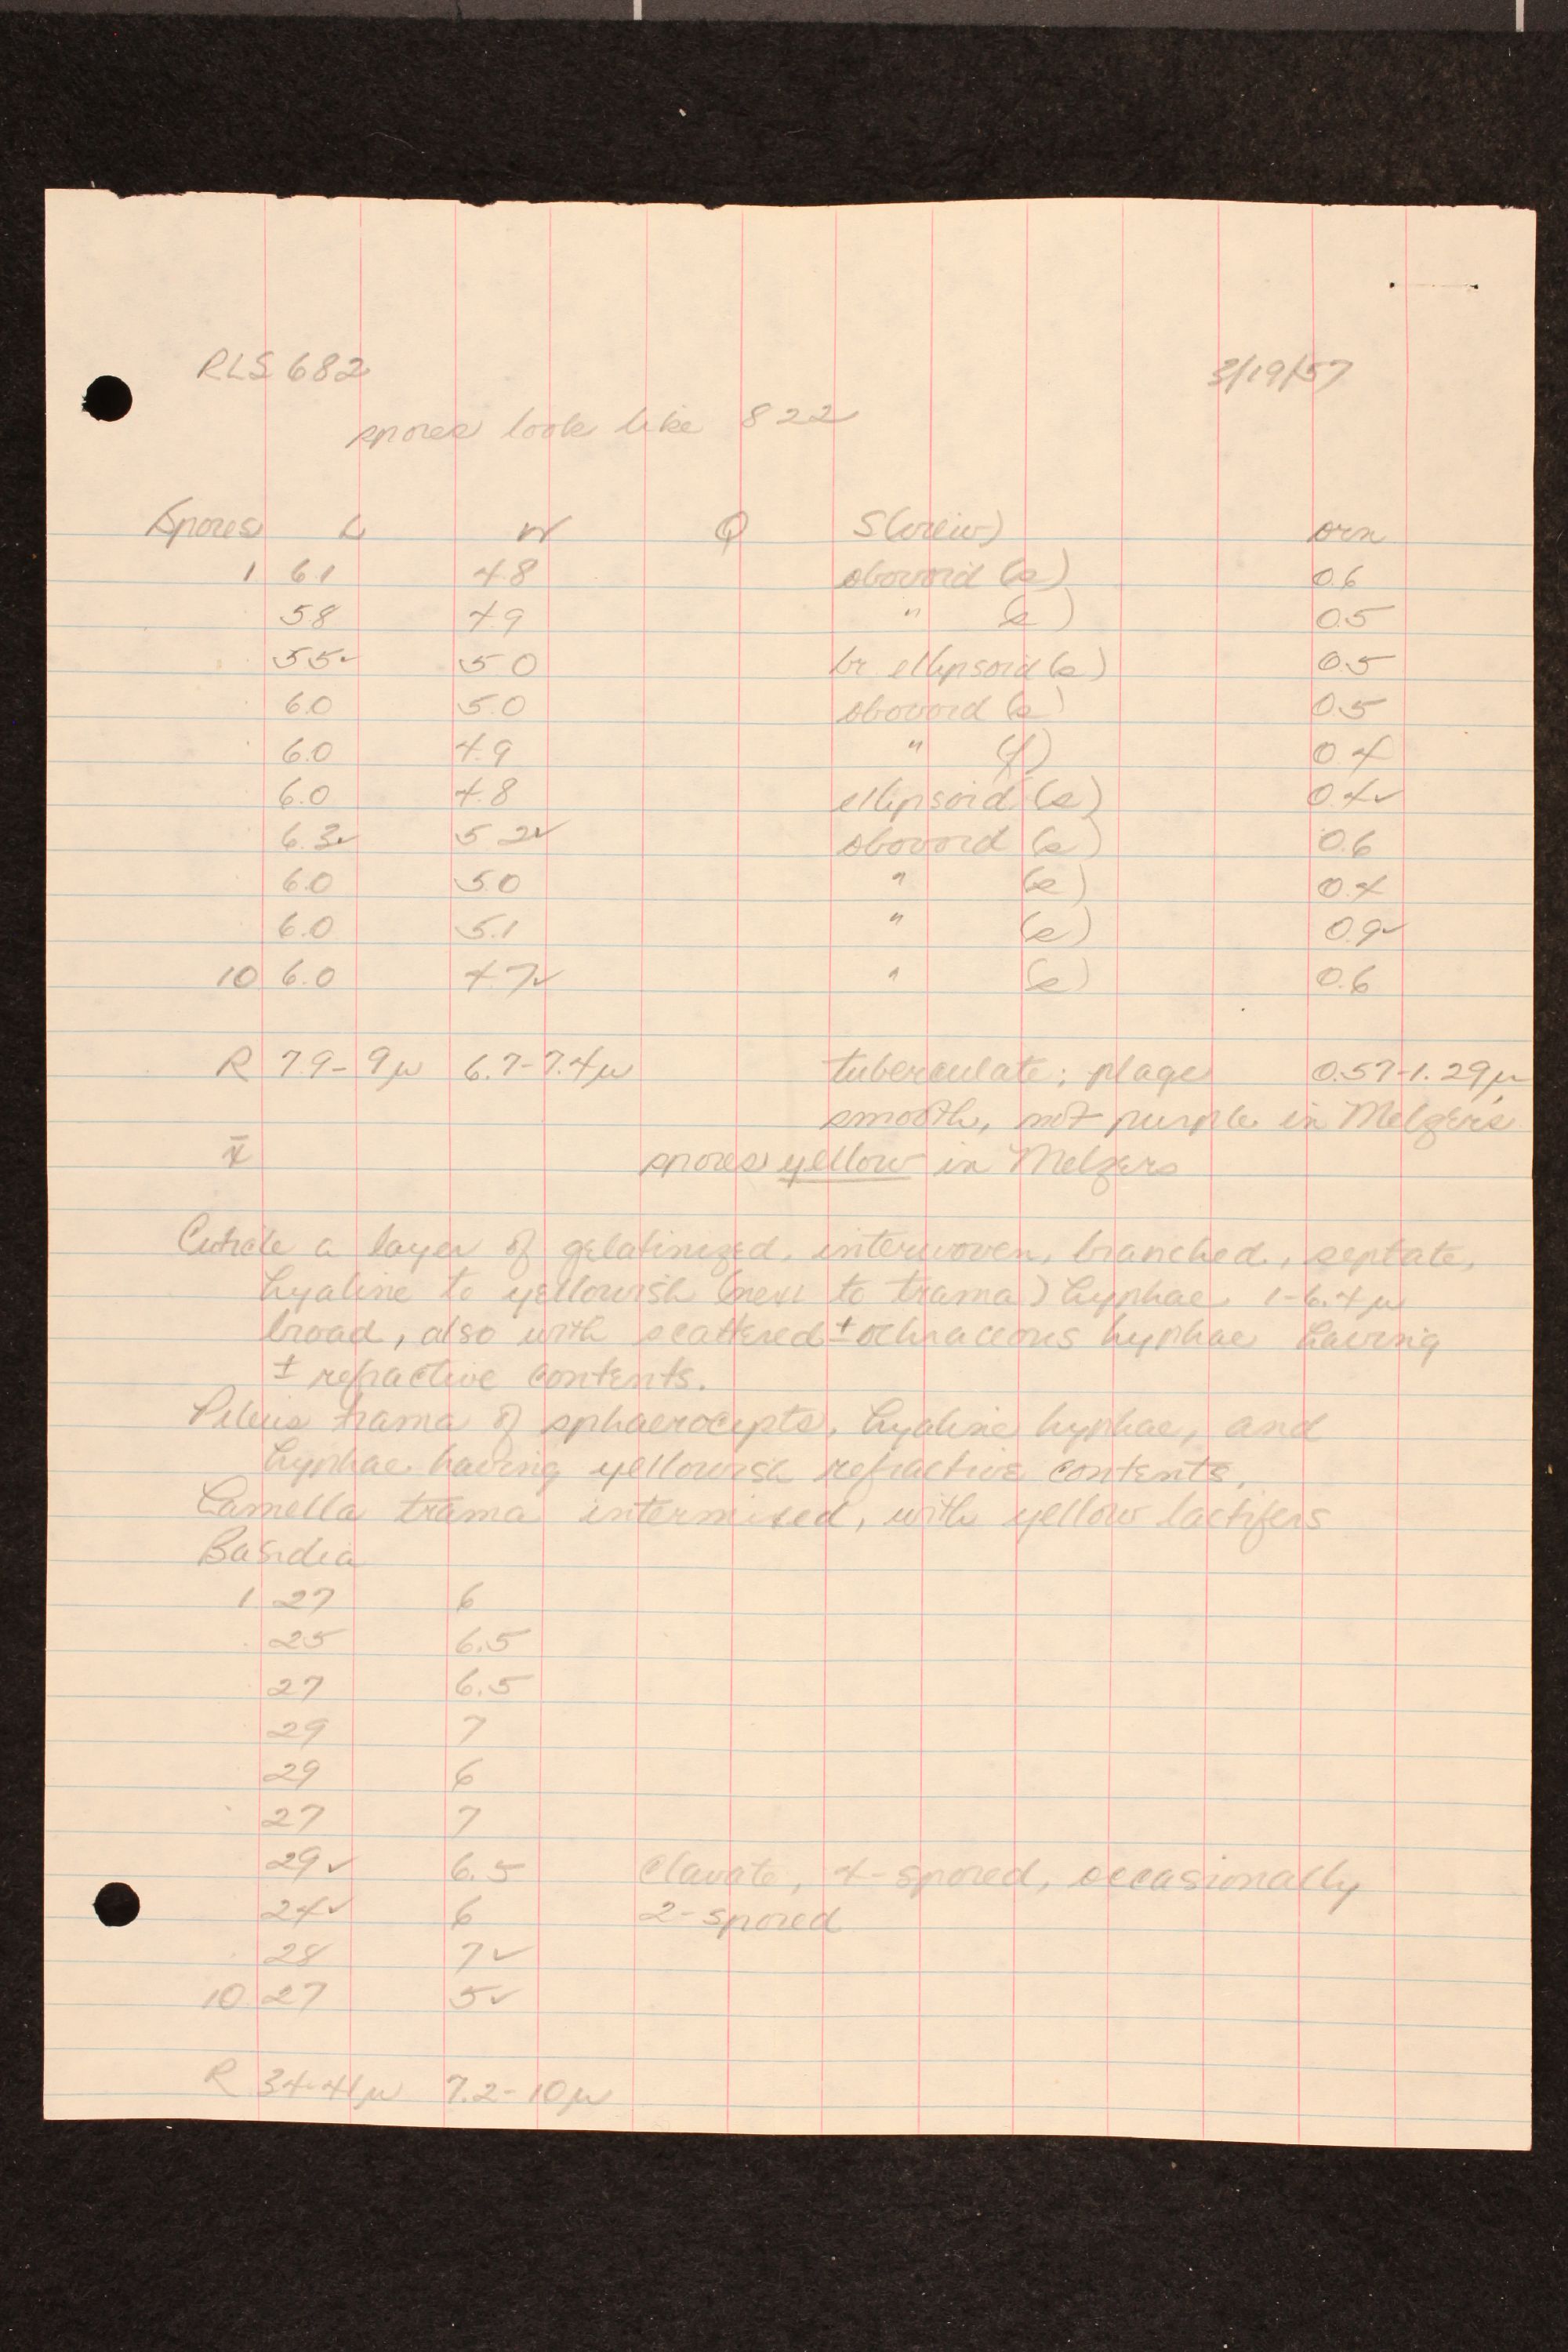 RLS 682 3/19/57
spores look like 822
Spores L W Q S(view) orn
1 6.1 4.8 obovoid (s) 0.6
5.8 4.9 " (s) 0.5
5.5✓ 5.0 br ellipsoid (s) 0.5
6.0 5.0 obovoid (s) 0.5
6.0 4.9 " (f) 0.4
6.0 4.8 ellipsoid (s) 0.4✓
6.3✓ 5.2✓ obovoid (s) 0.6
6.0 5.0 " (s) 0.4
6.0 5.1 " (s) 0.9✓
10 6.0 4.7✓ " (s) 0.6
R 7.9-9µ 6.7-7.4µ tuberculate; plage 0.57-1.29µ
smooth, not purple in Melzer's
x̄ spores yellow in Melzers
Cuticle a layer of gelatinized, interwoven, branched, septate,
hyaline to yellowish (next to trama) hyphae 1-6.4µ
broad, also with scattered ± ochraceous hyphae having
± refractive contents.
Pileus trama of sphaerocysts, hyaline hyphae, and
hyphae having yellowish refractive contents.
Lamella trama intermixed, with yellow lactifers
Basidia
1 27 6
25 6.5
27 6.5
29 7
29 6
27 7
29✓ 6.5 clavate, 4-spored, occasionally
24✓ 6 2-spored
28 7✓
10 27 5✓
R 34-41µ 7.2-10µ